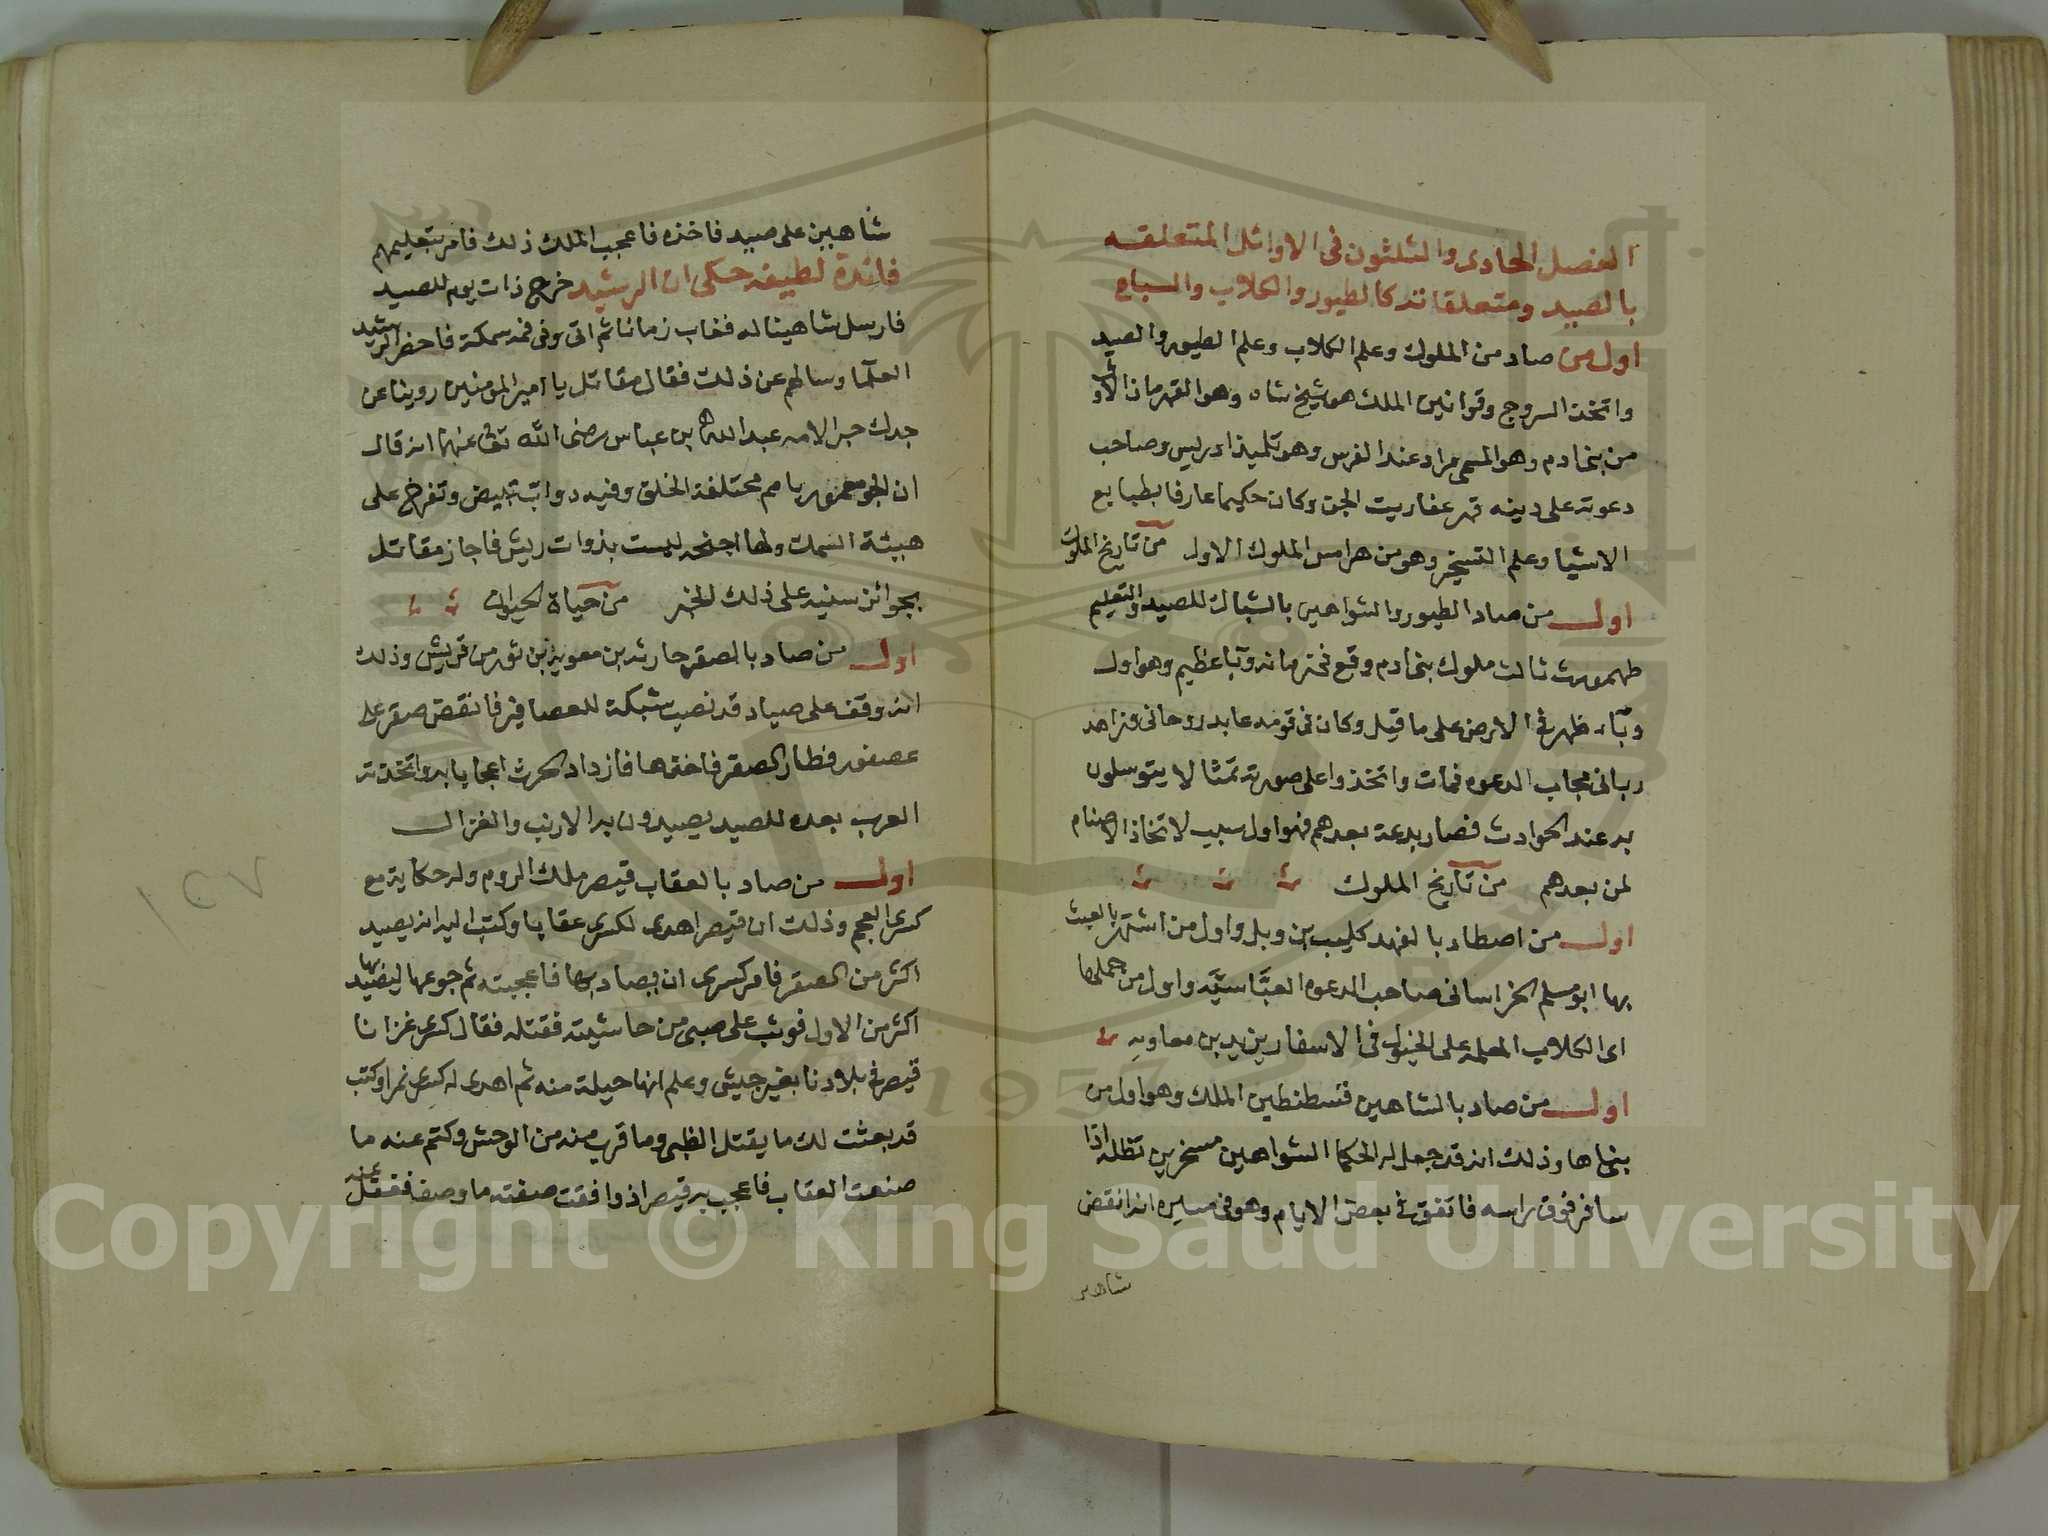 الفصل الحادى والثلثون فى الاوائل المتعلقه
بالصيد ومتعلقاته كالطيور والكلاب والسباع
اول من صاد من الملوك وعلم الكلاب وعلم الطيور والصيد
واتخذ السروج وقوانين الملك هوشيخ شاه وهو القهرمان الاول
من بنى ادم وهو المسمى مراد عند الفرس وهو تلميذ ادريس وصاحب
دعوته على دينه قهر عفاريت الجن وكان حكيما عارفا بطبايع
الاشيا وعلم التسخير وهو من هرامس الملوك الاول من تاريخ الملوك
اول من صاد الطيور والشواهين بالشباك للصيد والتعليم
طهمورث ثالث ملوك بنى ادم وقع فى زمانه وبآ عظيم وهو اول
وبآء ظهر فى الارض على ما قيل وكان فى قومه عابد روحانى وزاهد
ربانى مجاب الدعوه فمات واتخذوا على صورته تمثالا يتوسلون
به عند الحوادث فصار بدعة بعدهم فهو اول سبب لاتخاذ الاصنام
لمن بعدهم من تاريخ الملوك
اول من اصطاد بالفهد كليب بن وبل واول من اشتهر بالعبث
بها ابو مسلم الخراسانى صاحب الدعوه العبَّاسيَّه واول من حملها
اى الكلاب المعلمه على الخيول فى الاسفار يزيد بن معاويه
اول من صاد بالشاهين قسطنطين الملك وهو اول من
بنى‍اها وذلك انه قد جعل له الحكما الشواهين مسخرين تظله اذا
سافر فوق راسه فاتفق فى بعض الايام وهو فى مسيره انه انقض
شاهين
شاهين على صيد فاخذه فاعجب الملك ذلك فامر بتعليمهم
فائدة لطيفه حكى ان الرشيد خرج ذات يوم للصيد
فارسل شاهينا له فغاب زمانا ثم اتى وفى فمه سمكة فاحضر الرشيد
العلمآ وسالهم عن ذلك فقال مقاتل يا امير المومنين روينا عن
جدك حبر الامه عبد الله بن عباس رضى الله تعالى عنهما انه قال
ان الجو معمور بامم مختلفة الخلق وفيه دوابّ تبيض وتفرخ على
هيئة السمك ولها اجنحه ليست بذوات ريش فاجاز مقاتل
بجوائز سنيه على ذلك الخبر من حياة الحيوان
اول من صاد بالصقر حارث بن معوية بن ثور من قريش وذلك
انه وقف على صياد قد نصب شبكة للعصافير فانقض صقر على
عصفور فطار الصقر فاختها فازداد الحرث اعجابا به واتخذته
العرب بعده للصيد يصيدون به الارنب والغزال
اول من صاد بالعقاب قيصر ملك الروم وله حكاية مع
كسرى العجم وذلك ان قيصر اهدى لكسرى عقابا وكتب اليه انه يصيد
اكثر من الصقر فامر كسرى ان يصاد بها فاعجبته ثم جوعها ليصيد بها
اكثر من الاول فوثب على صبى من حاشيته فقتله فقال كسرى غزانا
قيصر فى بلادنا بغير جيش وعلم انها حيلة منه ثم اهدى له كسرى نمرا وكتب
قد بعثت لك ما يقتل الظبى وما قرب منه من الوحش وكتم عنه ما
صنعت العقاب فاعجب به قيصر اذ وافقت صفته ما وصف فغفل عنه
١٢٧
Copyright © King Saud University
1957